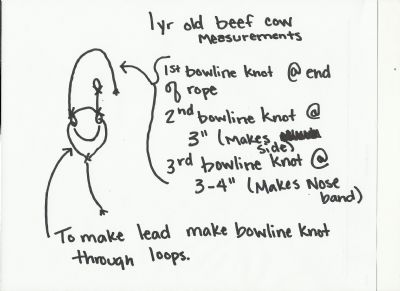 1yr old beef cow
Measurements
1st bowline knot @ end
of rope
2nd bowline knot @
3" (Makes side)
3rd bowline knot @
3-4" (Makes Nose
band)
To make lead make bowline knot
through loops.